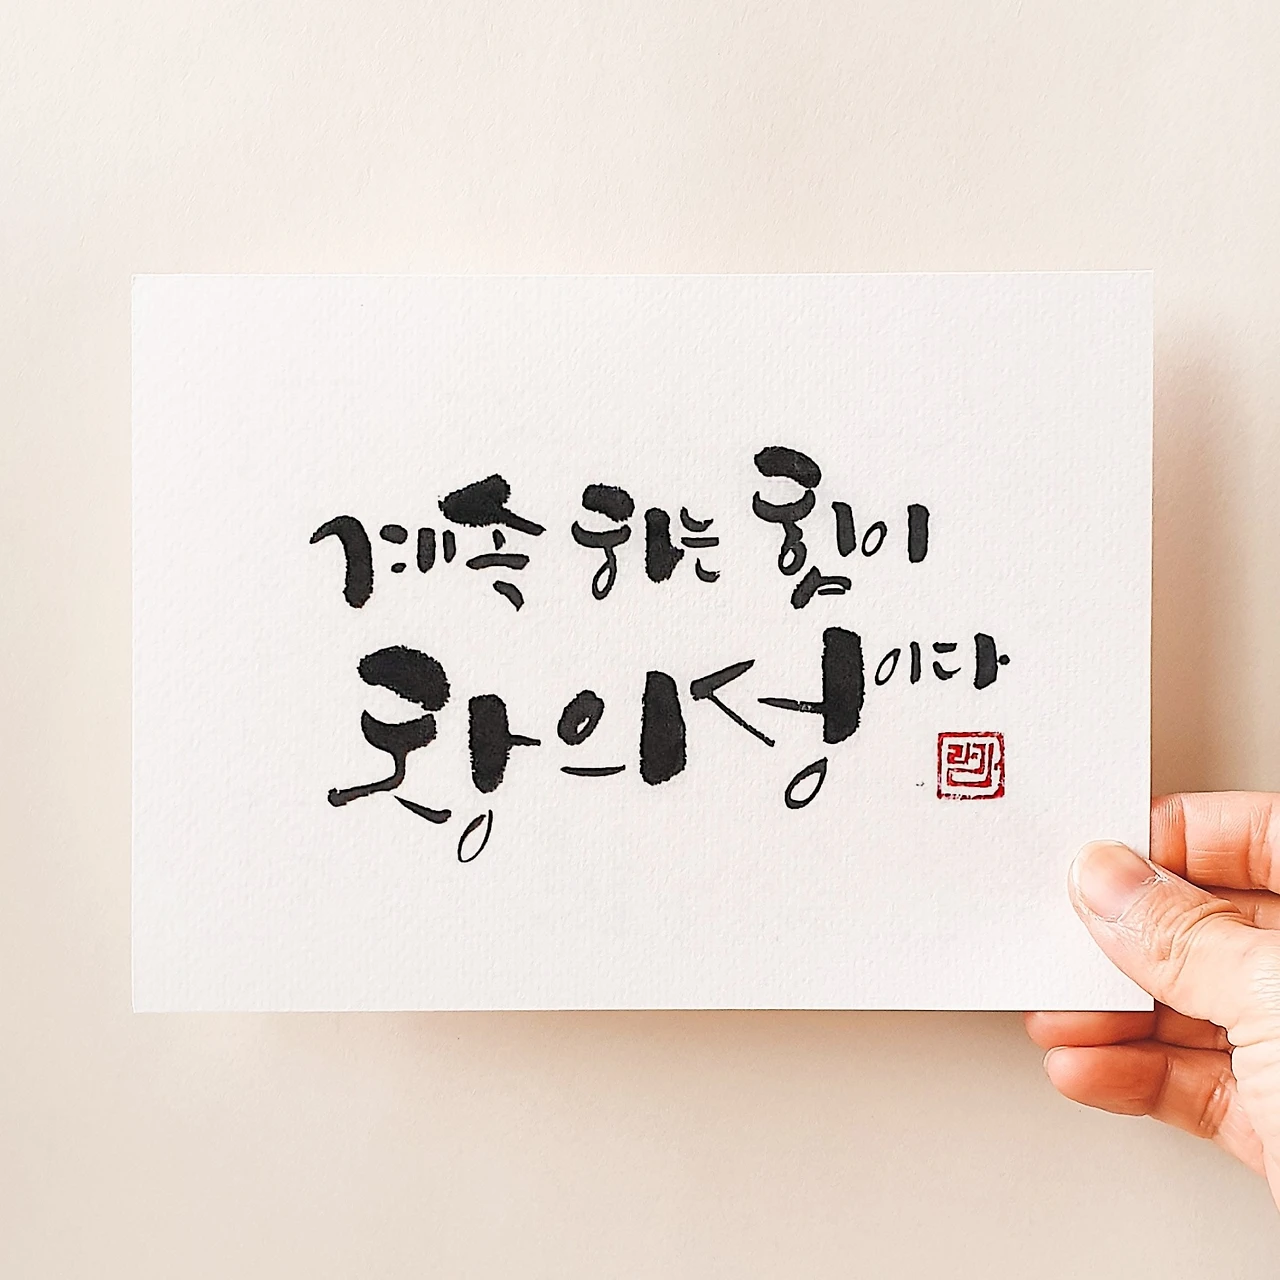 계속 하는 힘이
창의성이다